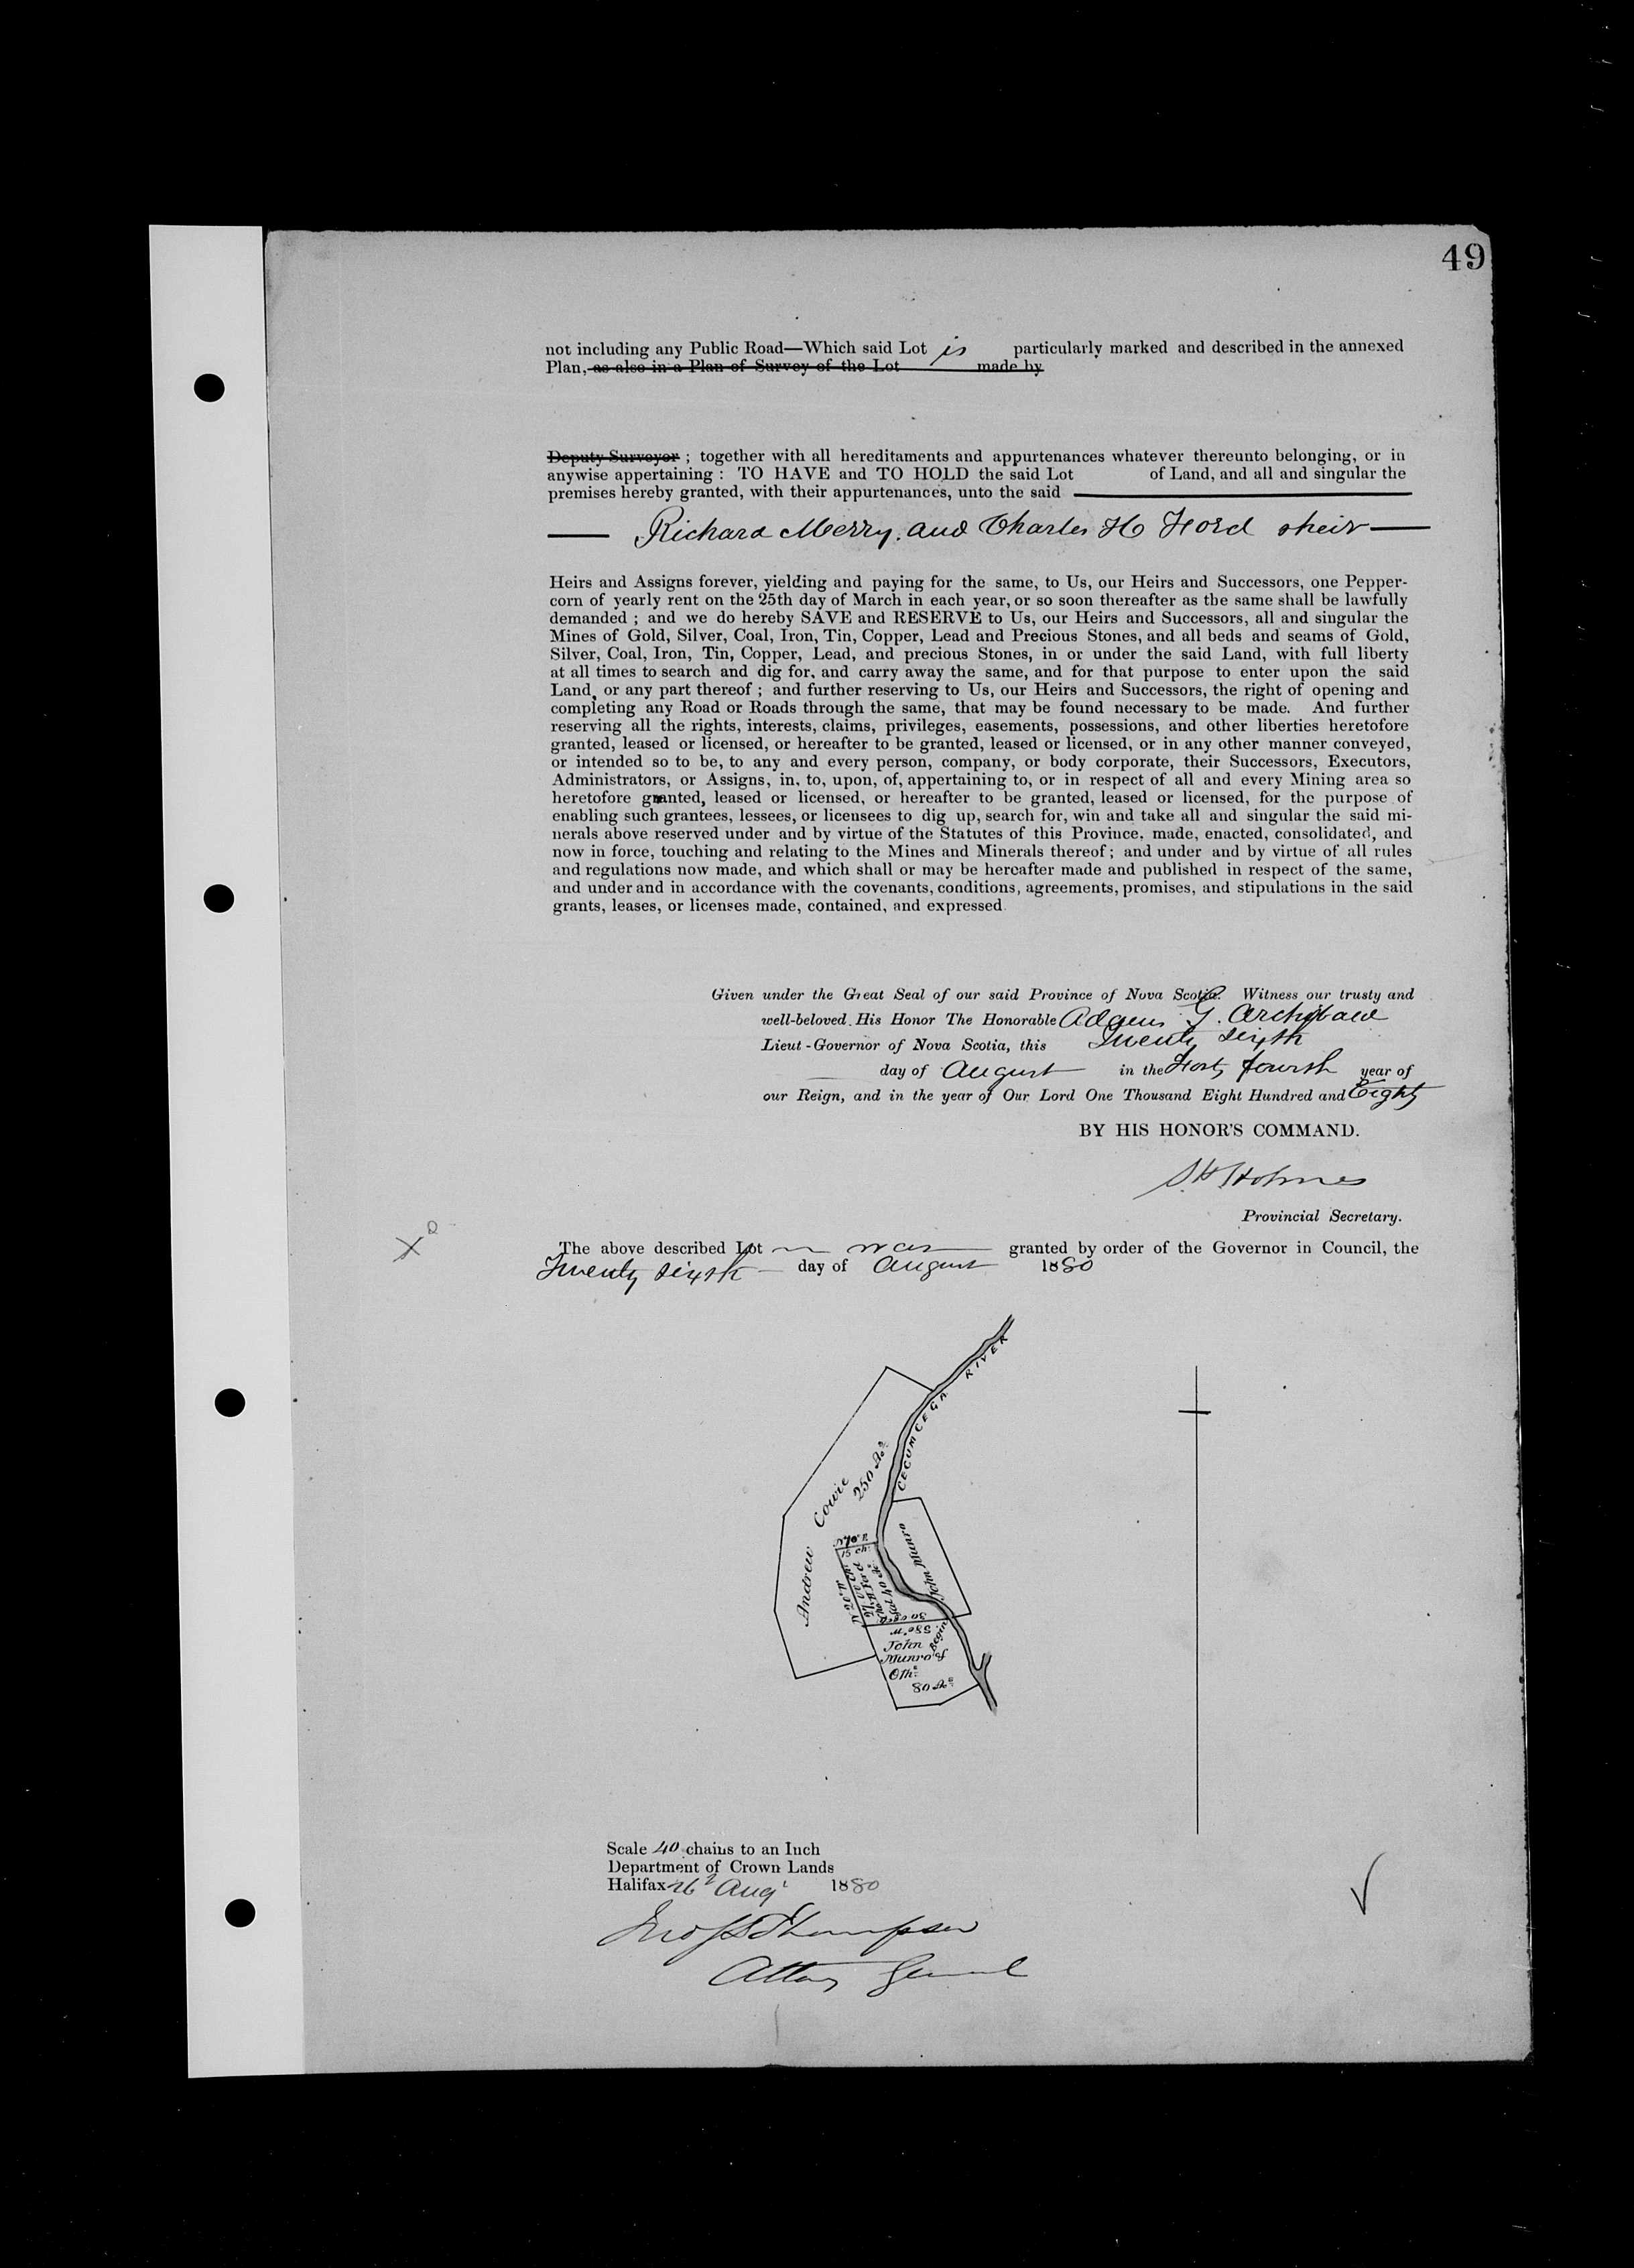 49
not including any Public Road—Which said Lot is particularly marked and described in the annexed
Plan, as also in a Plan of Survey of the Lot made by
Deputy Surveyor ; together with all hereditaments and appurtenances whatever thereunto belonging, or in
anywise appertaining : TO HAVE and TO HOLD the said Lot of Land, and all and singular the
premises hereby granted, with their appurtenances, unto the said
Richard Merry, and Charles H Ford their
Heirs and Assigns forever, yielding and paying for the same, to Us, our Heirs and Successors, one Pepper-
corn of yearly rent on the 25th day of March in each year, or so soon thereafter as the same shall be lawfully
demanded ; and we do hereby SAVE and RESERVE to Us, our Heirs and Successors, all and singular the
Mines of Gold, Silver, Coal, Iron, Tin, Copper, Lead and Precious Stones, and all beds and seams of Gold,
Silver, Coal, Iron, Tin, Copper, Lead, and precious Stones, in or under the said Land, with full liberty
at all times to search and dig for, and carry away the same, and for that purpose to enter upon the said
Land, or any part thereof ; and further reserving to Us, our Heirs and Successors, the right of opening and
completing any Road or Roads through the same, that may be found necessary to be made. And further
reserving all the rights, interests, claims, privileges, easements, possessions, and other liberties heretofore
granted, leased or licensed, or hereafter to be granted, leased or licensed, or in any other manner conveyed,
or intended so to be, to any and every person, company, or body corporate, their Successors, Executors,
Administrators, or Assigns, in, to, upon, of, appertaining to, or in respect of all and every Mining area so
heretofore granted, leased or licensed, or hereafter to be granted, leased or licensed, for the purpose of
enabling such grantees, lessees, or licensees to dig up, search for, win and take all and singular the said mi-
nerals above reserved under and by virtue of the Statutes of this Province, made, enacted, consolidated, and
now in force, touching and relating to the Mines and Minerals thereof ; and under and by virtue of all rules
and regulations now made, and which shall or may be hereafter made and published in respect of the same,
and under and in accordance with the covenants, conditions, agreements, promises, and stipulations in the said
grants, leases, or licenses made, contained, and expressed.
Given under the Great Seal of our said Province of Nova Scotia. Witness our trusty and
well-beloved His Honor The Honorable Adams G. Archibald
Lieut-Governor of Nova Scotia, this Twenty sixth
day of August in the Forty fourth year of
our Reign, and in the year of Our Lord One Thousand Eight Hundred and Eighty
BY HIS HONOR'S COMMAND.
S H Holmes
Provincial Secretary.
The above described Lot was granted by order of the Governor in Council, the
Twenty sixth day of August 1880
CEGUMCEGA RIVER
Andrew Cowie
250 Acs
15 ch:
John Munro
S 80° W
Begin
John
Munro &
Oths
80 Acs
Scale 40 chains to an Inch
Department of Crown Lands
Halifax 26 Augt 1880
Jno S D Thompson
Attorney General